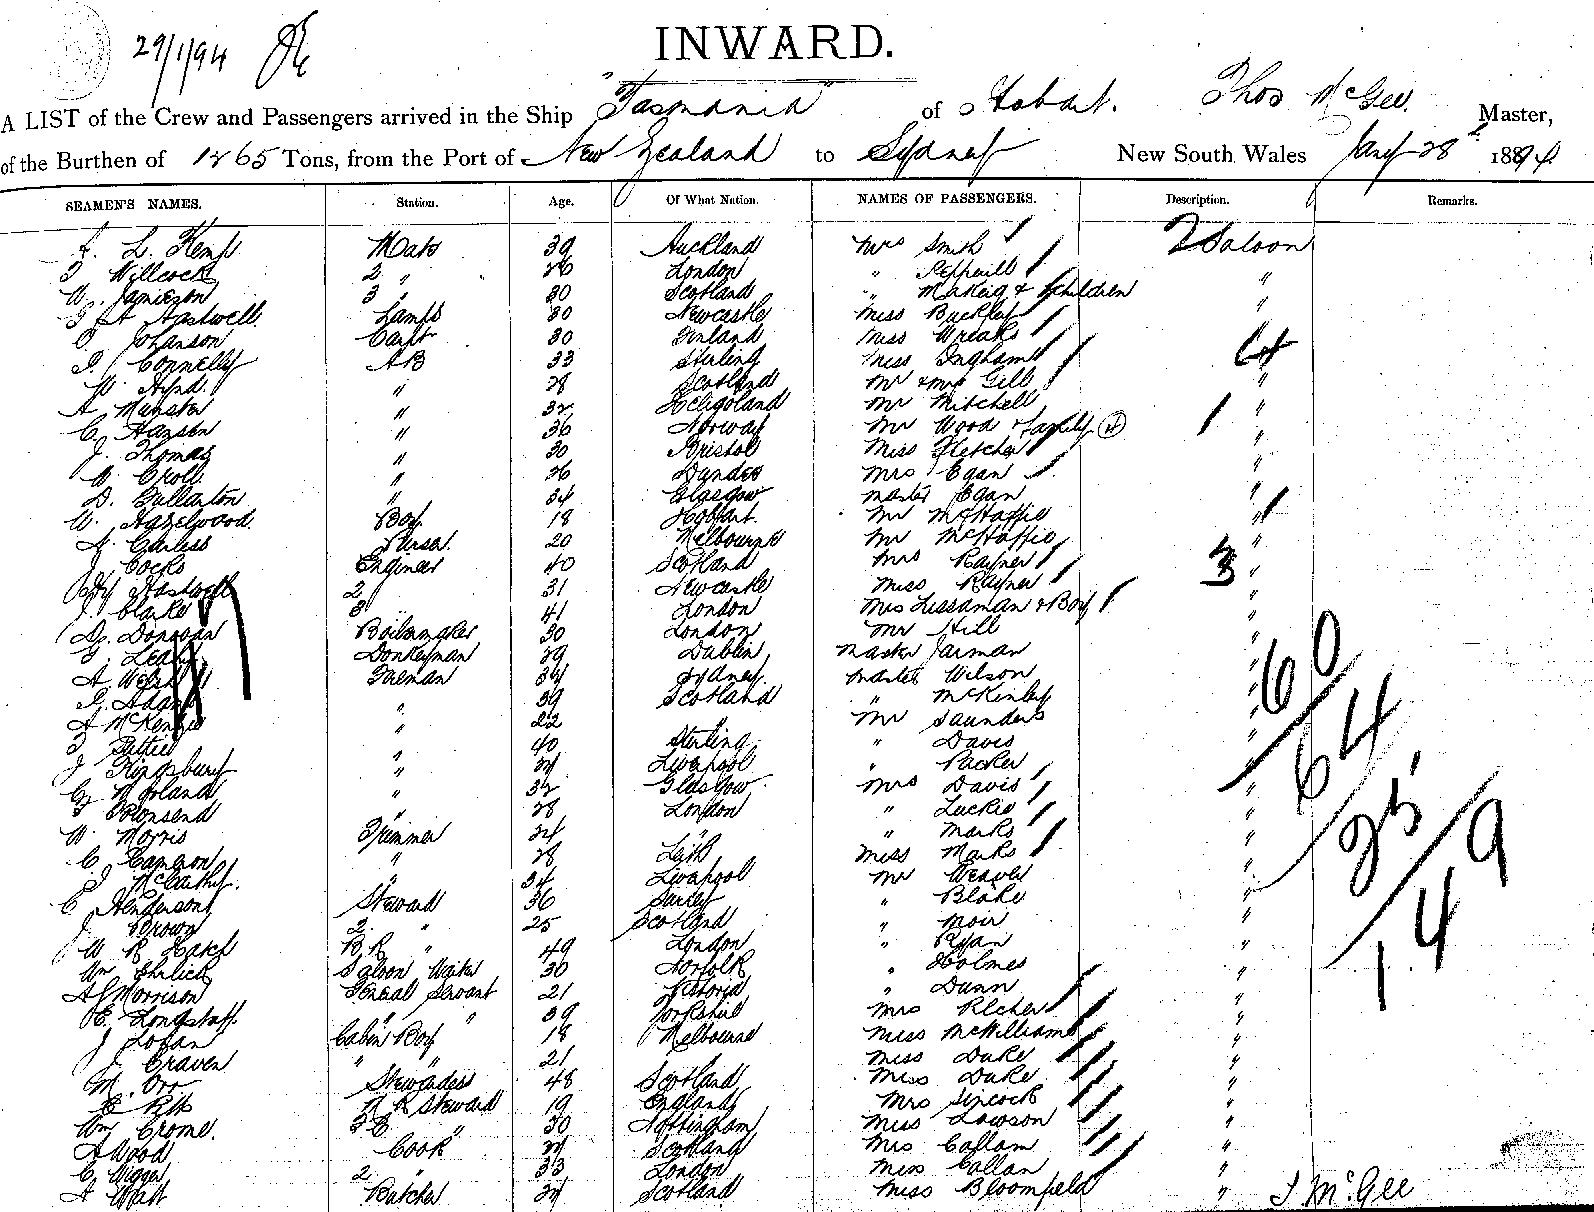 29/1/94
INWARD.
A LIST of the Crew and Passengers arrived in the Ship "Tasmania" of Hobart. Thos McGee. Master,
of the Burthen of 1265 Tons, from the Port of New Zealand to Sydney New South Wales Jany 28th 1894
SEAMEN'S NAMES. Station. Age. Of What Nation. NAMES OF PASSENGERS. Description. Remarks.
L. Kemp Mate 39 Auckland Mrs Smith 2 Saloon
Willcock 2 " 26 London " "
W. Jamieson 3 " 30 Scotland " Makeig & children "
Hastwell Lamps 30 Newcastle Miss Buckley "
Johanson Carpt 30 Finland Miss Wreaks
Connelly AB 33 Stirling Miss Ingham 64
W. Hynd. " 28 Scotland Mr & Mrs Gill "
A Munster " 32 Heligoland Mr Mitchell "
C. Hansen " 36 Norway Mr Wood & Family (4) "
J. Thomas " 30 Bristol Miss Fletcher "
W Croll " 26 Dundee Mrs Egan "
D. Gullanton " 34 Glasgow Master Egan "
W. Hazelwood. Boy. 18 Hobart. Mr McHaffie "
Carless Purser. 20 Melbourne Mr McHaffie "
J. Cocks Engineer 40 Scotland Mrs Rayner 3 "
Hy Hastwell 2 31 Newcastle Miss Rayner "
J. Clarke 3 41 London Mrs Lissaman & Boy "
D. Donovan Boilermaker 30 London Mr Hill "
Leahy Donkeyman 29 Dublin, Master Jarman "
A Welsh Fireman 34 Sydney. Master Wilson " 60
G. Adam " 39 Scotland " McKinley "
A McKenzie " 22 " Mr Saunders " 64
Pattie " 40 Stirling " Davis "
J Kingsbury " 24 Liverpool " Packer "
G Morland " 32 Glasgow Mrs Davis "
Townsend " 28 London " Luckie " 25
W. Morris Trimmer 24 " " Marks " 149
C. Cameron " 28 Leith Miss Marks "
J McCarthy. " 34 Liverpool Mr Weaver "
C Henderson Steward 36 Surrey " Blake "
J. Brown 2 " 25 Scotland " Moir "
W R Hard B.R " 49 London " Ryan "
Wm Ehrlick Saloon Waiter 30 Norfolk " Holmes "
A J Morrison General Servant 21 Victoria " Dunn "
E. Longstaff. " " 39 Yorkshire Mrs Pilcher "
J Logan Cabin Boy 18 Melbourne Miss McWilliams "
J. Craven " " 21 " Miss Duke "
M. Orr Stewardess 48 Scotland Miss Duke "
E Pitt F.R Steward 19 England Mrs Sincock "
Wm Crome. 30 Nottingham Miss Lawson "
A Wood Cook 24 Scotland Mrs Callam "
C Wigger 2 " 33 London Miss Callan "
A Watt Butcher 24 Scotland Miss Bloomfield " T McGee